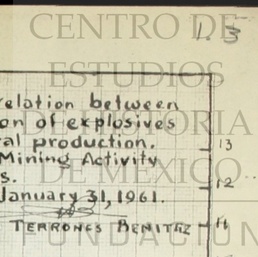 CENTRO DE
1.3
ESTUDIOS
relation between
on of explosives
DE HISTORIA
al production. 13
Mining Activity
DE MEXICO
s. 12
January 31, 1961.
TERRONES BENITEZ 11
FUNDACION